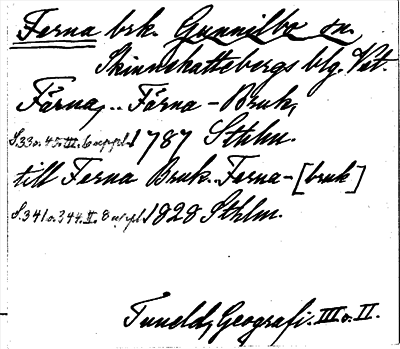 Ferna brk. Gunnilbo sn.
Skinnskattebergs blg. Vst.
Färna,.. Färna-Bruk,
S.33 o. 45. III. 6 uppl. 1787 Sthlm.
till Ferna Bruk.. Ferna-[bruk]
S.341 o. 344. II. 8 uppl. 1828 Sthlm.
Tuneld, Geografi. III o. II.